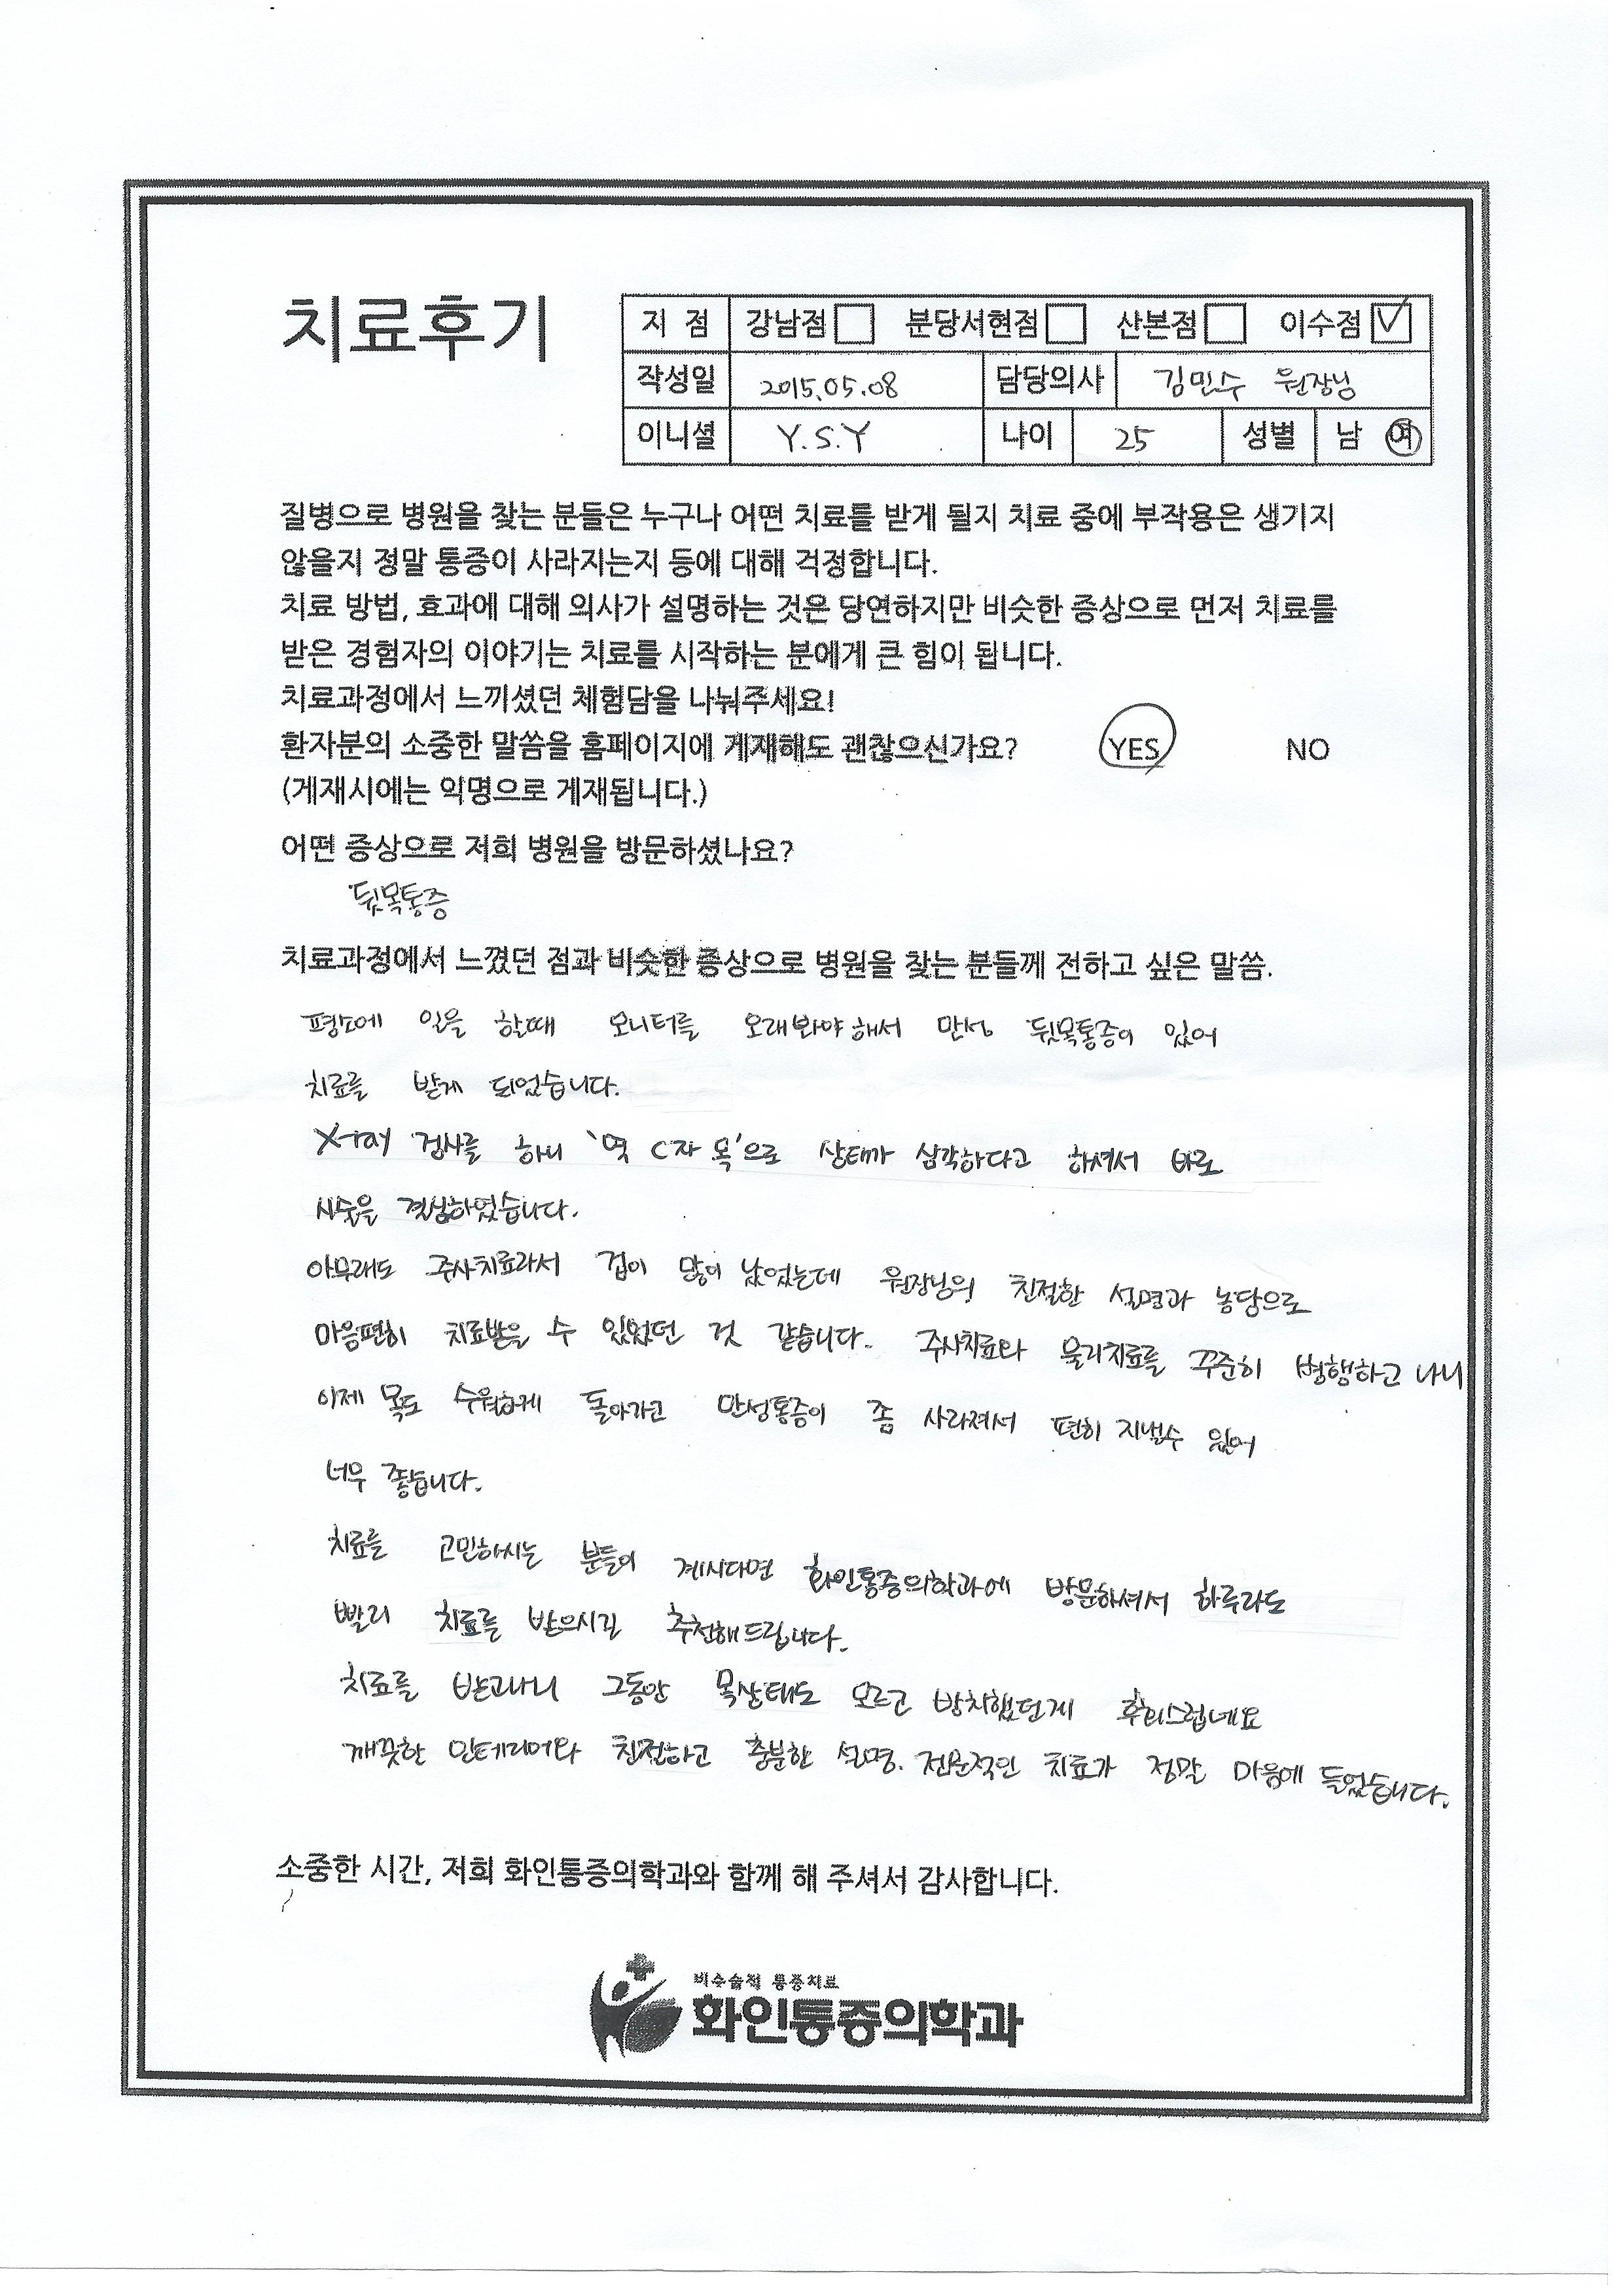 치료후기
지 점 강남점 분당서현점 산본점 이수점
작성일 2015.05.08 담당의사 김민수 원장님
이니셜 Y.S.Y 나이 25 성별 남 여
질병으로 병원을 찾는 분들은 누구나 어떤 치료를 받게 될지 치료 중에 부작용은 생기지
않을지 정말 통증이 사라지는지 등에 대해 걱정합니다.
치료 방법, 효과에 대해 의사가 설명하는 것은 당연하지만 비슷한 증상으로 먼저 치료를
받은 경험자의 이야기는 치료를 시작하는 분에게 큰 힘이 됩니다.
치료과정에서 느끼셨던 체험담을 나눠주세요!
환자분의 소중한 말씀을 홈페이지에 게재해도 괜찮으신가요? YES NO
(게재시에는 익명으로 게재됩니다.)
어떤 증상으로 저희 병원을 방문하셨나요?
뒷목통증
치료과정에서 느꼈던 점과 비슷한 증상으로 병원을 찾는 분들께 전하고 싶은 말씀.
평소에 일을 할때 모니터를 오래봐야해서 만성 뒷목통증이 있어
치료를 받게 되었습니다.
X-ray 검사를 하니 '역 C자 목'으로 상태가 심각하다고 하셔서 바로
시술을 결심하였습니다.
아무래도 주사치료라서 겁이 많이 났었는데 원장님의 친절한 설명과 농담으로
마음편히 치료받을 수 있었던 것 같습니다. 주사치료와 물리치료를 꾸준히 병행하고 나니
이제 목도 수월하게 돌아가고 만성통증이 좀 사라져서 편히 지낼수 있어
너무 좋습니다.
치료를 고민하시는 분들이 계시다면 화인통증의학과에 방문하셔서 하루라도
빨리 치료를 받으시길 추천해드립니다.
치료를 받고나니 그동안 목상태도 모르고 방치했던게 후회스럽네요
깨끗한 인테리어와 친절하고 충분한 설명. 전문적인 치료가 정말 마음에 들었습니다.
소중한 시간, 저희 화인통증의학과와 함께 해 주셔서 감사합니다.
비수술적 통증치료
화인통증의학과